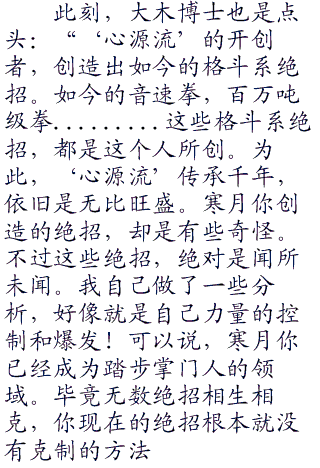 此刻，大木博士也是点
头：“‘心源流’的开创
者，创造出如今的格斗系绝
招。如今的音速拳，百万吨
级拳.........这些格斗系绝
招，都是这个人所创。为
此，‘心源流’传承千年，
依旧是无比旺盛。寒月你创
造的绝招，却是有些奇怪。
不过这些绝招，绝对是闻所
未闻。我自己做了一些分
析，好像就是自己力量的控
制和爆发！可以说，寒月你
已经成为踏步掌门人的领
域。毕竟无数绝招相生相
克，你现在的绝招根本就没
有克制的方法